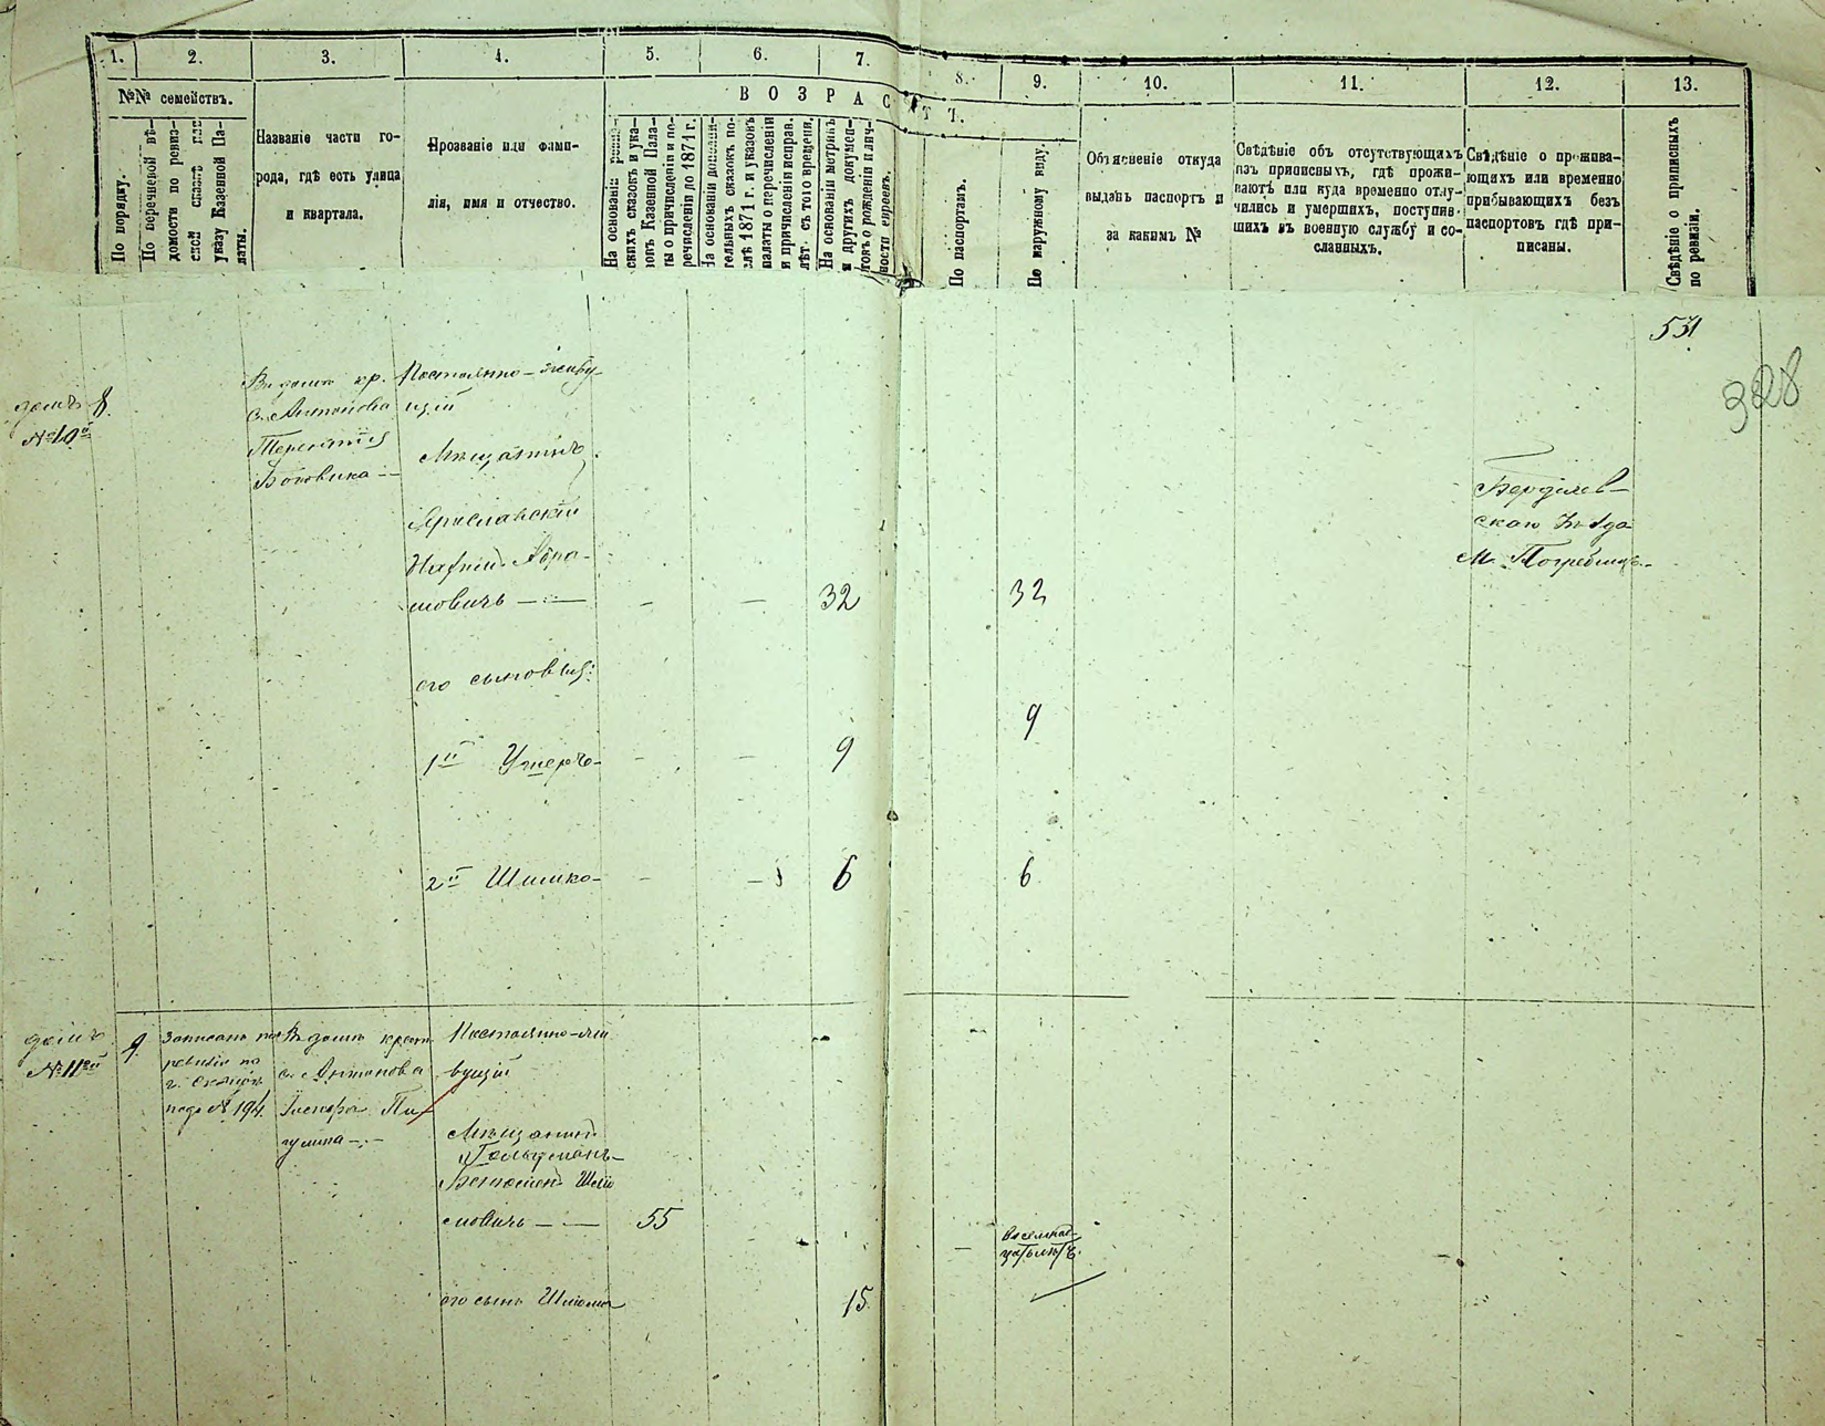 1. 2. 3. 4. 5. 6. 7. 8. 9. 10. 11. 12. 13.
№№ семействъ.
ВОЗРАСТЪ.
По порядку.
По перечневой вѣ-
домости по ревиз-
ской сказкѣ или
указу Казенной Па-
латы.
Названіе части го-
рода, гдѣ есть улица
и квартала.
Прозваніе или фами-
лія, имя и отчество.
На основаніи ревиз-
скихъ сказокъ и ука-
зовъ Казенной Пала-
ты о причисленіи и пе-
речисленіи до 1871 г.
На основаніи дополни-
тельныхъ сказокъ по-
слѣ 1871 г. и указовъ
палаты о перечисленіи
и причисленіи исправ.
лѣт. съ того времени.
На основаніи метрикъ
и другихъ докумен-
товъ о рожденіи и лич-
ности евреевъ.
По паспортамъ.
По наружному виду.
Объясненіе откуда
выданъ паспортъ и
за какимъ №
Свѣдѣніе объ отсутствующихъ
изъ приписныхъ, гдѣ прожи-
ваютъ или куда временно отлу-
чились и умершихъ, поступив-
шихъ въ военную службу и со-
сланныхъ.
Свѣдѣніе о прожива-
ющихъ или временно
прибывающихъ безъ
паспортовъ гдѣ при-
писаны.
Свѣдѣніе о приписныхъ
по ревизіи.
531
328
домъ 8.
№ 10й
Въ домѣ кр.
с. Антонова
Терентія
Боковика
Постоянно-живу-
щій
Мѣщанинъ
Ярославскій
Нахманъ Абра-
мовичъ — — — — 32 32
Бердичев-
скаго уѣзда
М. Погребищъ
его сыновья:
1й Умеръ - - - 9 9
2й Шимко - - - 6 6
домъ
№ 11й
9.
Записанъ по
ревизіи по
г. Сквирѣ
подъ № 194.
Въ домѣ крест.
с. Антонова
Пи-
гулина
Постоянно-жи
вущій
Мѣщанинъ
Гольдманъ
Беньоминъ Шмо
мовичъ — — 55
его сынъ Шмома 15
восемнад-
цатьлѣтъ.